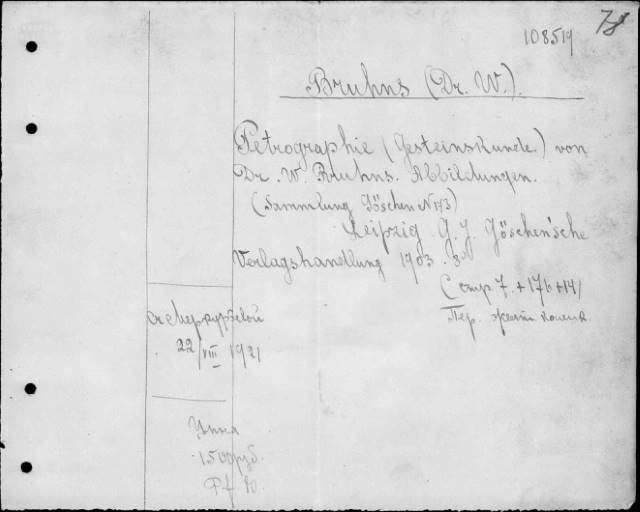 78
108519
Bruhns (Dr. W.).
Petrographie (Gesteinskunde.) von
Dr. W. Bruhns. Abbildungen.
(Sammlung Göschen N 173)
Leipzig. G. J. Göschen'sche
Verlagshandlung 1903. 8°
(стр 7 + 176 + 14)
Пер. желт. коленк.
22/VIII 1921
Цена
1500 руб.